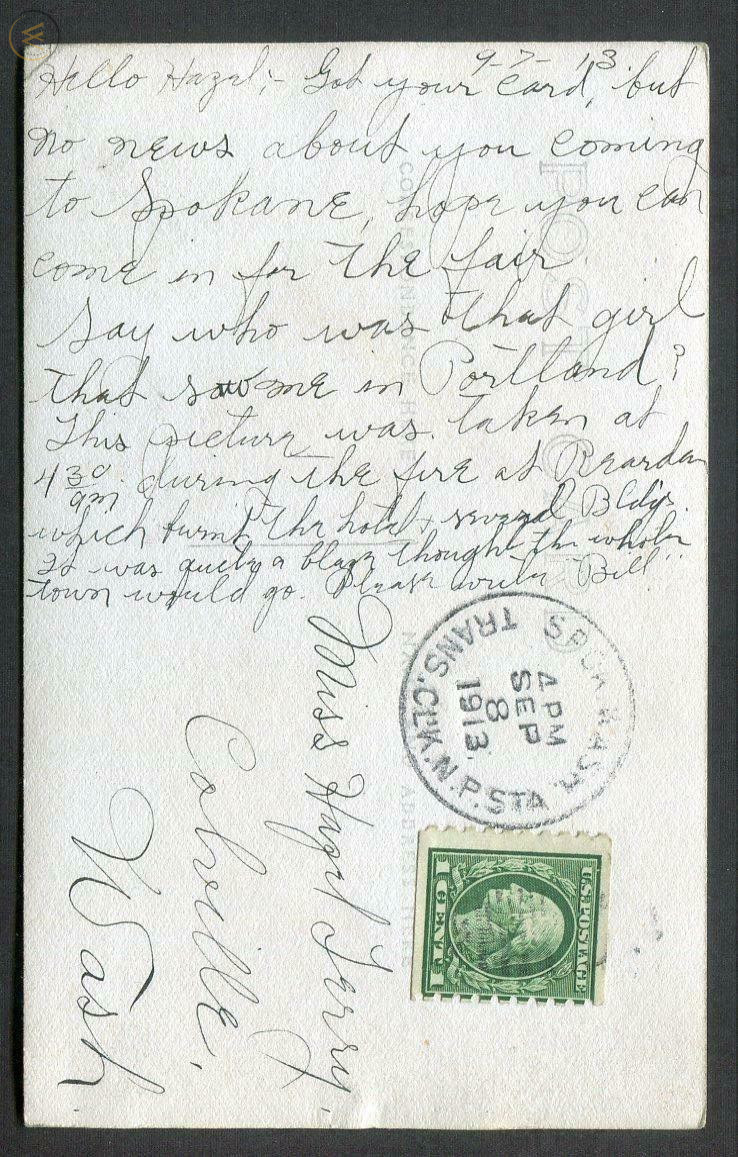 9-7-13
Hello Hazel;- Got your card, but
no news about you coming
to Spokane, hope you can
come in for the fair.
Say who was that girl
that saw me in Portland?
This picture was taken at
4 30 am. during the fire at Reardan
which burnt the hotel & several Bldgs.
It was quite a blaze thought the whole
town would go. Please write "Bill"
Miss Hazel Terry,
Colville,
Wash
POST CARD
CORRESPONDENCE HERE
NAME AND ADDRESS HERE
SPOK. WASH.
TRANS. CL'K. N. P. STA.
4 PM
SEP
8
1913
U.S. POSTAGE
1 CENT 1
W